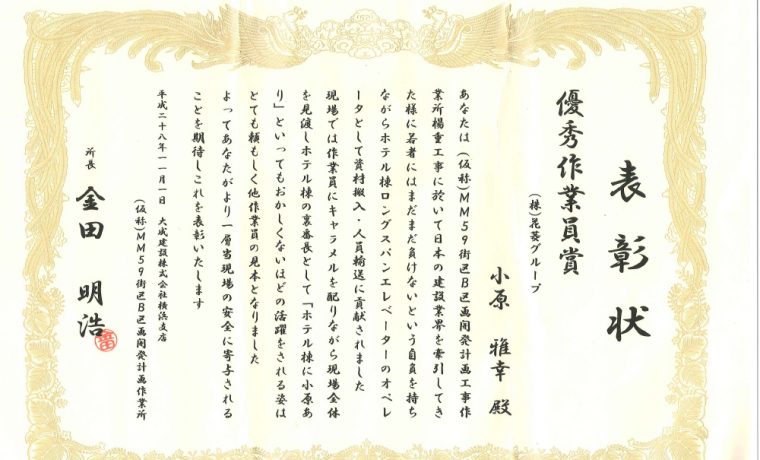 表彰状
優秀作業員賞
(株)花菱グループ
小原 雅幸 殿
あなたは(仮称)MM59街区B区画開発計画工事作
業所楊重工事に於いて日本の建設業界を牽引してき
た様に若者にはまだまだ負けないという自負を持ち
ながらホテル棟ロングスパンエレベーターのオペレ
ータとして資材搬入・人員輸送に貢献されました
現場では作業員にキャラメルを配りながら現場全体
を見渡しホテル棟の裏番長として「ホテル棟に小原あ
り」といってもおかしくないほどの活躍をされる姿は
とても頼もしく他作業員の見本となりました
よってあなたがより一層当現場の安全に寄与される
ことを期待しこれを表彰いたします
平成二十八年一一月一日 大成建設株式会社横浜支店
(仮称)MM59街区B区画開発計画作業所
所長 金田 明浩